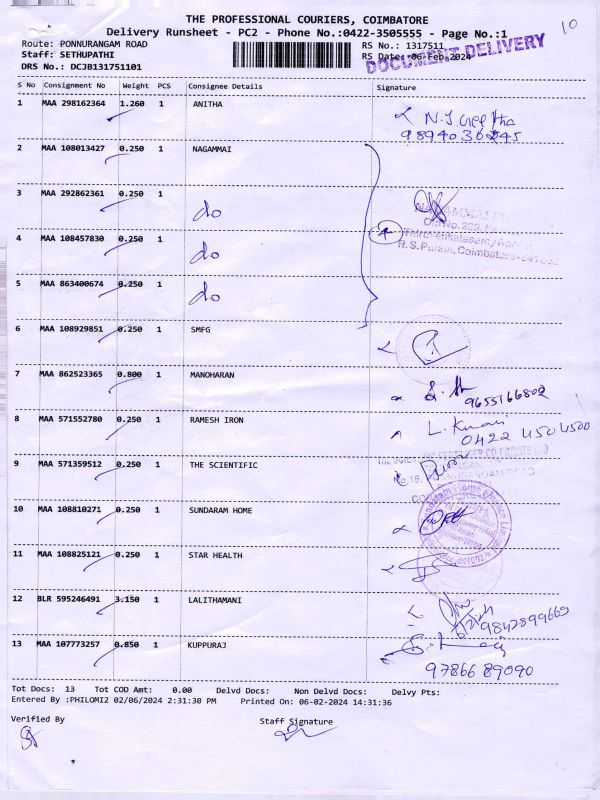 THE PROFESSIONAL COURIERS, COIMBATORE
10
Delivery Runsheet - PC2 - Phone No.:0422-3505555 - Page No.:1
Route: PONNURANGAM ROAD
RS No.: 1317511
Staff: SETHUPATHI
RS Date: 06-Feb-2024
DOCUMENT DELIVERY
DRS No.: DCJB131751101
S No Consignment No Weight PCS Consignee Details Signature
1 MAA 298162364 1.260 1 ANITHA
98940 30245
2 MAA 108013427 0.250 1 NAGAMMAI
3 MAA 292862361 0.250 1 do
4 MAA 108457830 0.250 1 do
R.S. Puram, Coimbatore
5 MAA 863400674 0.250 1 do
6 MAA 108929851 0.250 1 SMFG
7 MAA 862523365 0.800 1 MANOHARAN
9655166802
8 MAA 571552780 0.250 1 RAMESH IRON
L. Kumari
0422 4504500
9 MAA 571359512 0.250 1 THE SCIENTIFIC
10 MAA 108810271 0.250 1 SUNDARAM HOME
11 MAA 108825121 0.250 1 STAR HEALTH
12 BLR 595246491 3.150 1 LALITHAMANI
9842899669
13 MAA 107773257 0.850 1 KUPPURAJ
97866 89090
Tot Docs: 13 Tot COD Amt: 0.00 Delvd Docs: Non Delvd Docs: Delvy Pts:
Entered By :PHILOMI2 02/06/2024 2:31:30 PM Printed On: 06-02-2024 14:31:36
Verified By
Staff Signature